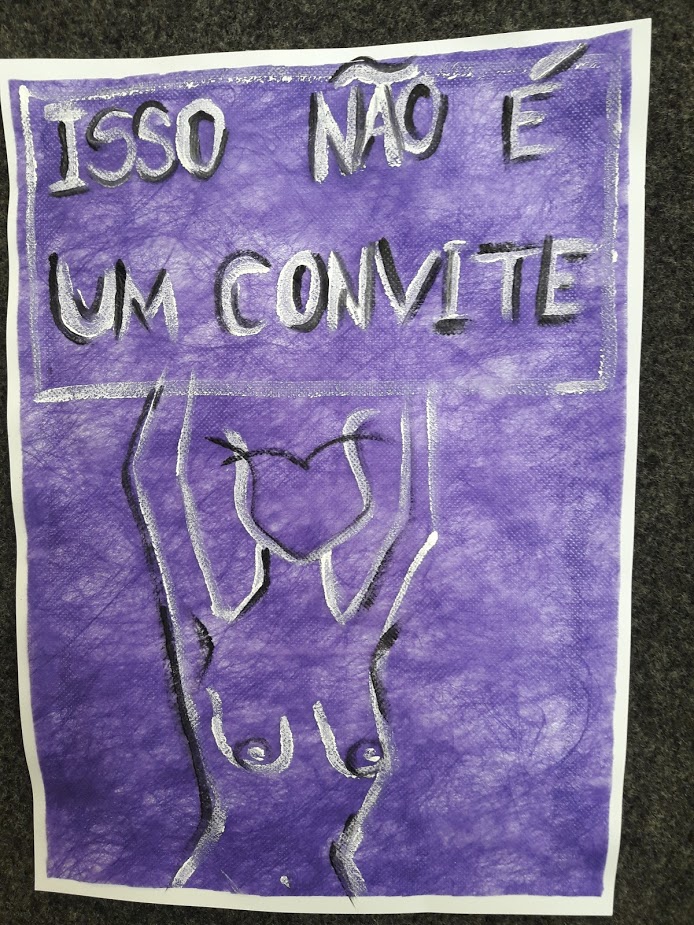 ISSO NÃO É
UM CONVITE